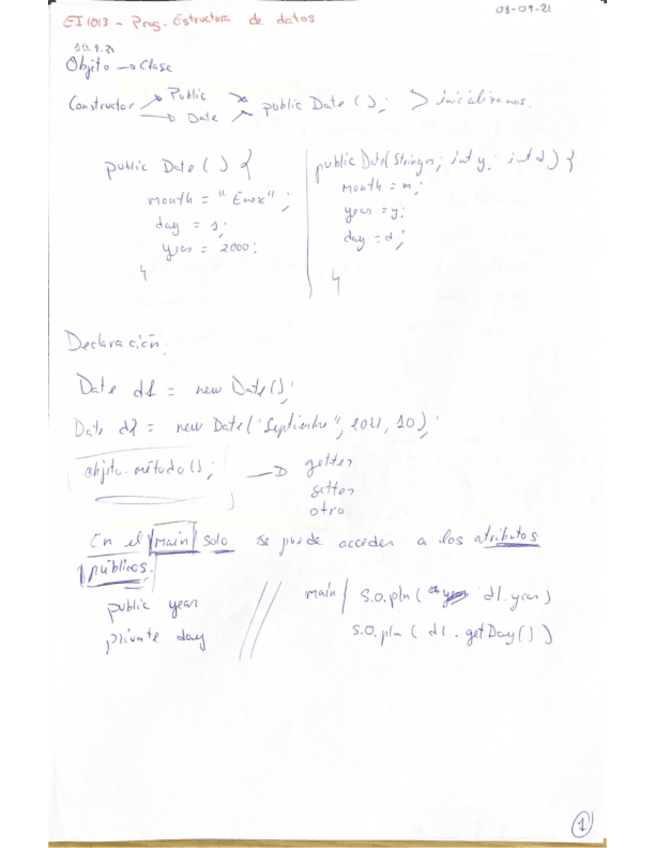 08-09-21
EI1013 - Prog. Estructura de datos
10.9.21
Objeto → Clase
Constructor → Public
→ Date
public Date(); > inicializamos.
public Date() {
month = "Enero";
day = 1;
year = 2000;
}
public Date(String m; int y; int d) {
month = m;
year = y;
day = d;
}
Declaración:
Date d1 = new Date();
Date d2 = new Date("Septiembre", 2021, 10);
objeto.método(); → getter
setter
otro
En el main solo se puede acceder a los atributos
públicos.
public year
private day
main | S.O.pln( d1.year)
S.O.pln (d1.getDay())
1